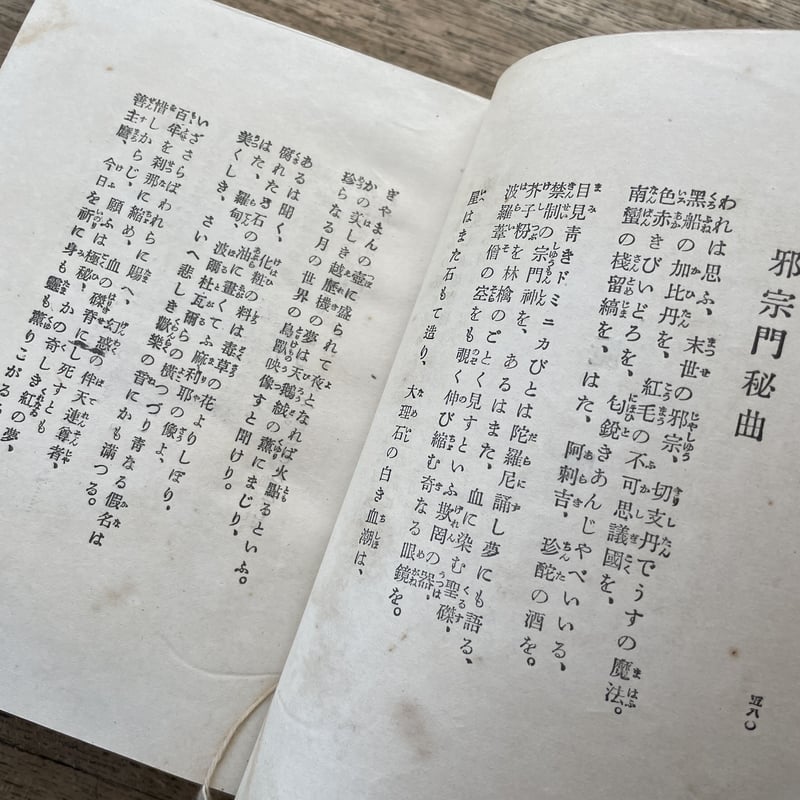 邪宗門秘曲
われは思ふ、末世の邪宗、切支丹でうすの魔法。
黑船の加比丹を、紅毛の不可思議國を、
色赤きびいどろを、匂鋭きあんじやべいいる、
南蠻の棧留縞を、はた、阿剌吉、珍酡の酒を。
目見靑きドミニカびとは陀羅尼誦し夢にも語る、
禁制の宗門神を、あるはまた、血に染む聖磔、
芥子粒を林檎のごとく見すといふ欺罔の器、
波羅葦僧の空をも覗く伸び縮む奇なる眼鏡を。
屋はまた石もて造り、大理石の白き血潮は、
ぎやまんの壺に盛られて夜となれば火點るといふ。
かの美しき越歷機の夢は天鵝絨の薰にまじり、
珍らなる月の世界の鳥獸映像すと聞けり。
あるは聞く、化粧の料は毒草の花よりしぼり、
腐れたる石の油に畫くてふ麻利耶の像よ、
はた、羅甸、波爾杜瓦爾らの橫つづり靑なる假名は
美くしき、さいへ悲しき歡樂の音にかも滿つる。
いざさらばわれらに賜へ、幻惑の伴天連尊者、
百年を刹那に縮め、血の磔脊にし死すとも
惜しからじ、願ふは極秘、かの奇しき紅の夢、
善主麿、今日を祈に身も靈も薰りこがるる。
五八〇